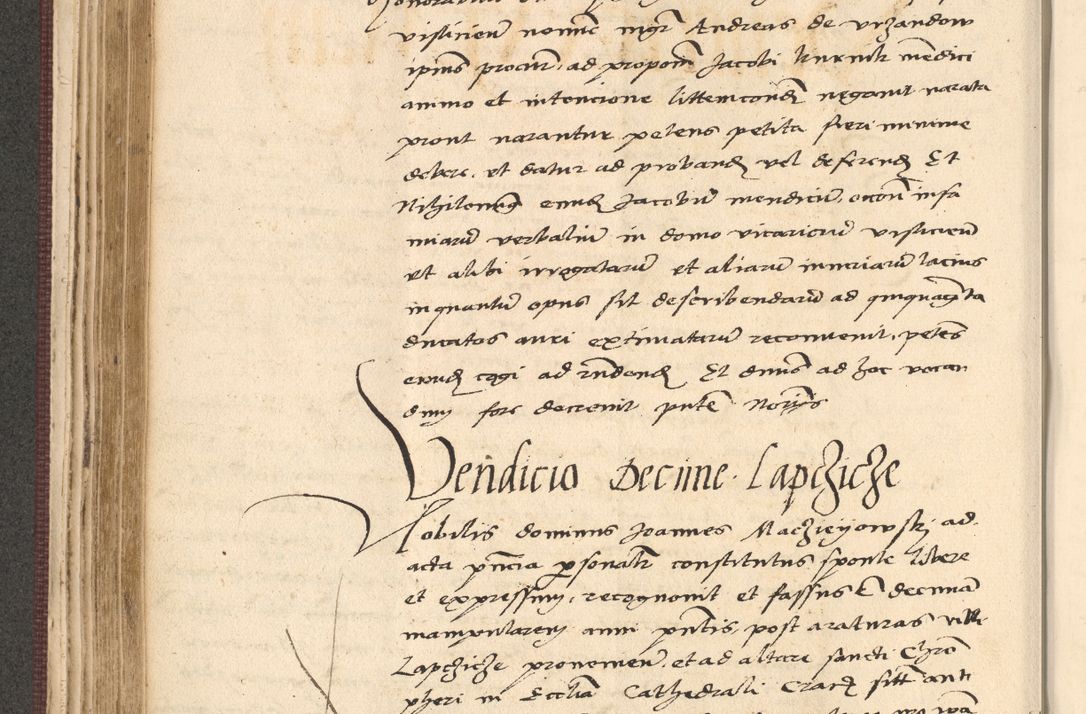 visliciensi nomine mgr Andreas de Vrzandow
ipius procur, ad proposm Jacobi mendici
animo et intencione littemcontdi negauit narrata
prout narantur petens petita fieri minime
debere, et datur ad probandum vel deferendum Et
Nihilominus eundem Jacobum mendicum, occoni infa
miarum verbalium in domo vicaricium visliciensi
et alibi irrogatarum et aliarum iniuriarum lacius
inquantum opus sit describendarum ad quinquaginta
ducatos auri extimatarum reconuenit, petens
eundem cogi ad rndendum Et dnus ad hoc vocan
dum fore decreuit pnte Norijs
Vendicio Decime Lapczicze
Nobilis dominus Joannes Maczieyowski ad
acta pncia personaliter constitutus sponte libere
et expressim, recognouit et fassus est decimam
manipularem anni pntis, post araturas ville
Lapczicze prouenien, et ad altare sancti Chro
pheri in Ecclia Cathedrali Cracoviensi sitt anti